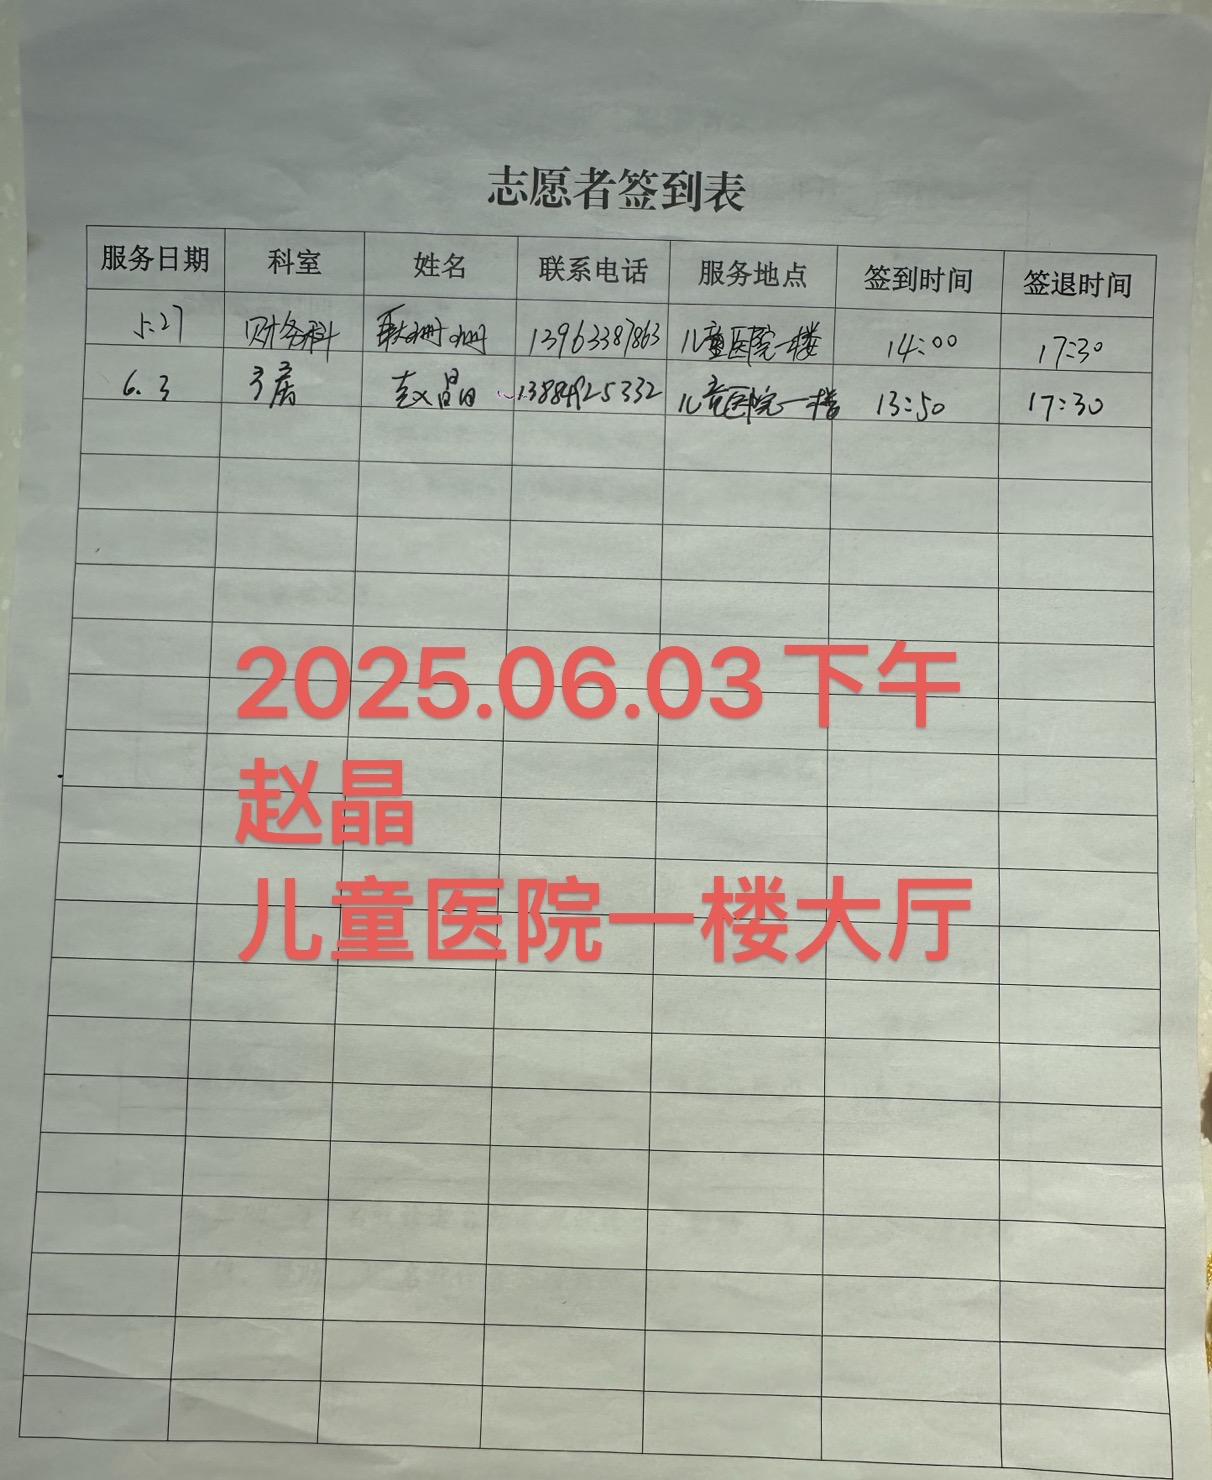 志愿者签到表
服务日期 科室 姓名 联系电话 服务地点 签到时间 签退时间
5.27 财务科 耿珊珊 13963387863 儿童医院一楼 14:00 17:30
6.3 赵晶 13884925332 儿童医院一楼 13:50 17:30
2025.06.03下午
赵晶
儿童医院一楼大厅